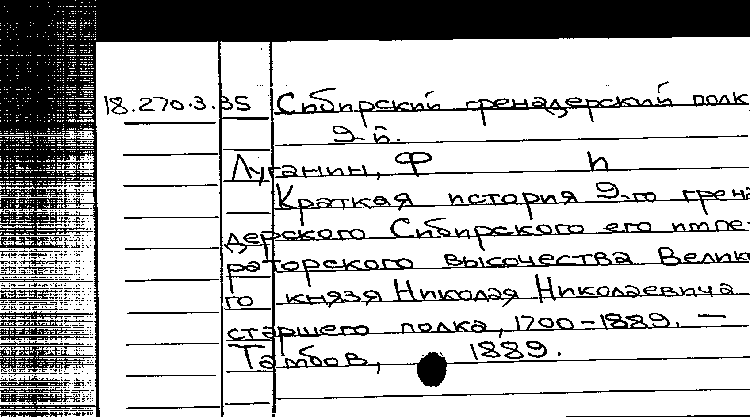 18.270.3.35 Сибирский гренадерский полк
9-й.
Луганин, Ф П
Краткая история 9-го грена
дерского Сибирского его импе-
раторского высочества Велик
го князя Николая Николаевича
старшего полка, 1700-1889. –
Тамбов, 1889.